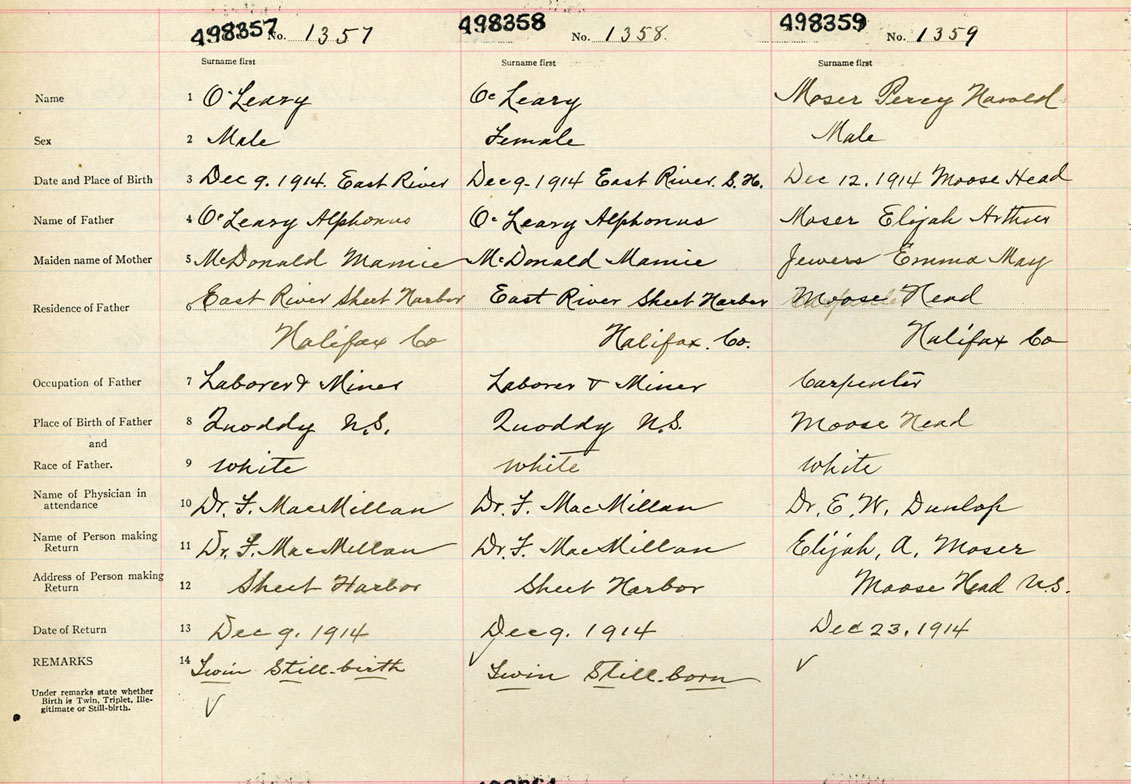 498357 No. 1357 498358 No. 1358. 498359 No. 1359
Surname first Surname first Surname first
Name 1 O'Leary O'Leary Moser Percy Harold
Sex 2 Male Female Male
Date and Place of Birth 3 Dec 9. 1914. East River Dec 9. 1914 East River. S. H. Dec 12. 1914 Moose Head
Name of Father 4 O'Leary Alphonus O'Leary Alphonus Moser Elijah Arthur
Maiden name of Mother 5 McDonald Mamie McDonald Mamie Jewers Emma May
Residence of Father 6 East River Sheet Harbor East River Sheet Harbor Moose Head
Halifax Co Halifax. Co. Halifax Co
Occupation of Father 7 Laborer & Miner Laborer & Miner Carpenter
Place of Birth of Father 8 Quoddy N.S. Quoddy N.S. Moose Head
and
Race of Father. 9 white white white
Name of Physician in
attendance 10 Dr. F. MacMillan Dr. F. MacMillan Dr. E. W. Dunlop
Name of Person making
Return 11 Dr. F. MacMillan Dr. F. MacMillan Elijah, A. Moser
Address of Person making
Return 12 Sheet Harbor Sheet Harbor Moose Head N.S.
Date of Return 13 Dec 9. 1914 Dec 9. 1914 Dec 23, 1914
REMARKS 14 Twin Still-birth Twin Still-born
Under remarks state whether
Birth is Twin, Triplet, Ille-
gitimate or Still-birth.